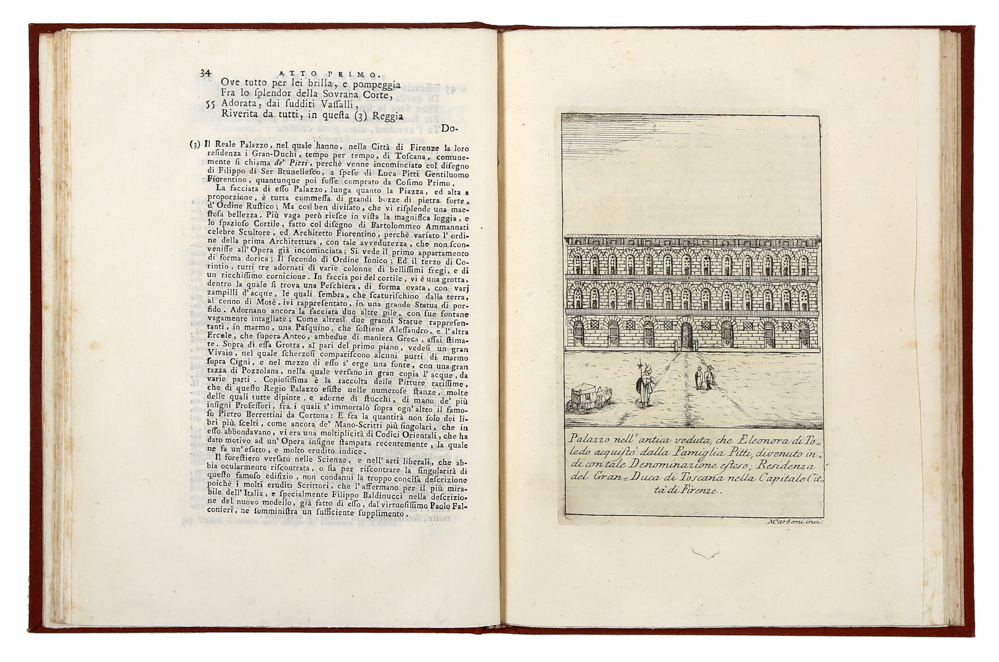 34 ATTO PRIMO.
Ove tutto per lei brilla, e pompeggia
Fra lo ſplendor della Sovrana Corte,
55 Adorata, dai ſudditi Vaſſalli,
Riverita da tutti, in queſta (3) Reggia
Do-
(3) Il Reale Palazzo, nel quale hanno, nella Città di Firenze la loro
reſidenza i Gran-Duchi, tempo per tempo, di Toscana, comune-
mente ſi chiama de' Pitti, perchè venne incominciato col diſegno
di Filippo di Ser Brunelleſco, a ſpeſe di Luca Pitti Gentiluomo
Fiorentino, quantunque poi foſſe comprato da Coſimo Primo.
La facciata di eſſo Palazzo, lunga quanto la Piazza, ed alta a
proporzione, è tutta commeſſa di grandi bozze di pietra forte,
d'Ordine Ruſtico; Ma così ben diviſato, che vi riſplende una mae-
ſtoſa bellezza. Più vaga però rieſce in viſta la magnifica loggia, e
lo ſpazioſo Cortile, fatto col diſegno di Bartolommeo Ammannati
celebre Scultore, ed Architetto Fiorentino, perchè variato l'ordi-
ne della prima Architettura, con tale avvedutezza, che non ſcon-
veniſſe all'Opera già incominciata; Si vede il primo appartamento
di forma dorica; Il ſecondo di Ordine Ionico; Ed il terzo di Co-
rintio, tutti tre adornati di varie colonne di belliſſimi fregi, e di
un ricchiſſimo cornicione. In faccia poi del cortile, vi è una grotta,
dentro la quale ſi trova una Peſchiera, di forma ovata, con varj
zampilli d'acque, le quali ſembra, che ſcaturiſchino dalla terra,
al cenno di Mosè, ivi rappreſentato, in una grande Statua di por-
fido. Adornano ancora la facciata due altre pile, con ſue fontane
vagamente intagliate; Come altresì due grandi Statue rappreſen-
tanti, in marmo, una Paſquino, che ſoſtiene Aleſſandro, e l'altra
Ercole, che ſupera Anteo, ambedue di maniera Greca, aſſai ſtima-
te. Sopra di eſſa Grotta, al pari del primo piano, vedeſi un gran
Vivaio, nel quale ſcherzoſi compariſcono alcuni putti di marmo
ſopra Cigni, e nel mezzo di eſſo s'erge una fonte, con una gran
tazza di Pozzolana, nella quale verſano in gran copia l'acque, da
varie parti. Copioſiſſima è la raccolta delle Pitture rariſſime,
che di queſto Regio Palazzo eſiſte nelle numeroſe ſtanze, molte
delle quali tutte dipinte, e adorne di ſtucchi, di mano de' più
inſigni Profeſſori, fra i quali s'immortalò ſopra ogn'altro il famo-
ſo Pietro Berrettini da Cortona: E fra la quantità non ſolo dei li-
bri più ſcelti, come ancora de' Mano-Scritti più ſingolari, che in
eſſo abbondavano, vi era una moltiplicità di Codici Orientali, che ha
dato motivo ad un'Opera inſigne ſtampata recentemente, la quale
ne fa un'eſatto, e molto erudito indice.
Il foreſtiero verſato nelle Scienze, e nell'arti liberali, che ab-
bia ocularmente riſcontrata, o ſia per riſcontrare la ſingolarità di
queſto famoſo edifizio, non condanni la troppo conciſa deſcrizione
poichè i molti eruditi Scrittori, che l'affermano per il più mira-
bile dell'Italia, e ſpecialmente Filippo Baldinucci nella deſcrizio-
ne del nuovo modello, già fatto di eſſo, dal virtuoſiſſimo Paolo Fal-
conieri, ne ſomminiſtra un ſufficiente ſupplimento.
Palazzo nell'antica veduta, che Eleonora di To-
ledo acquistò dalla Famiglia Pitti, divenuto in-
di con tale Denominazione esteso; Residenza
del Gran=Duca di Toscana nella Capitale Cit-
tà di Firenze.
M Carboni inci.